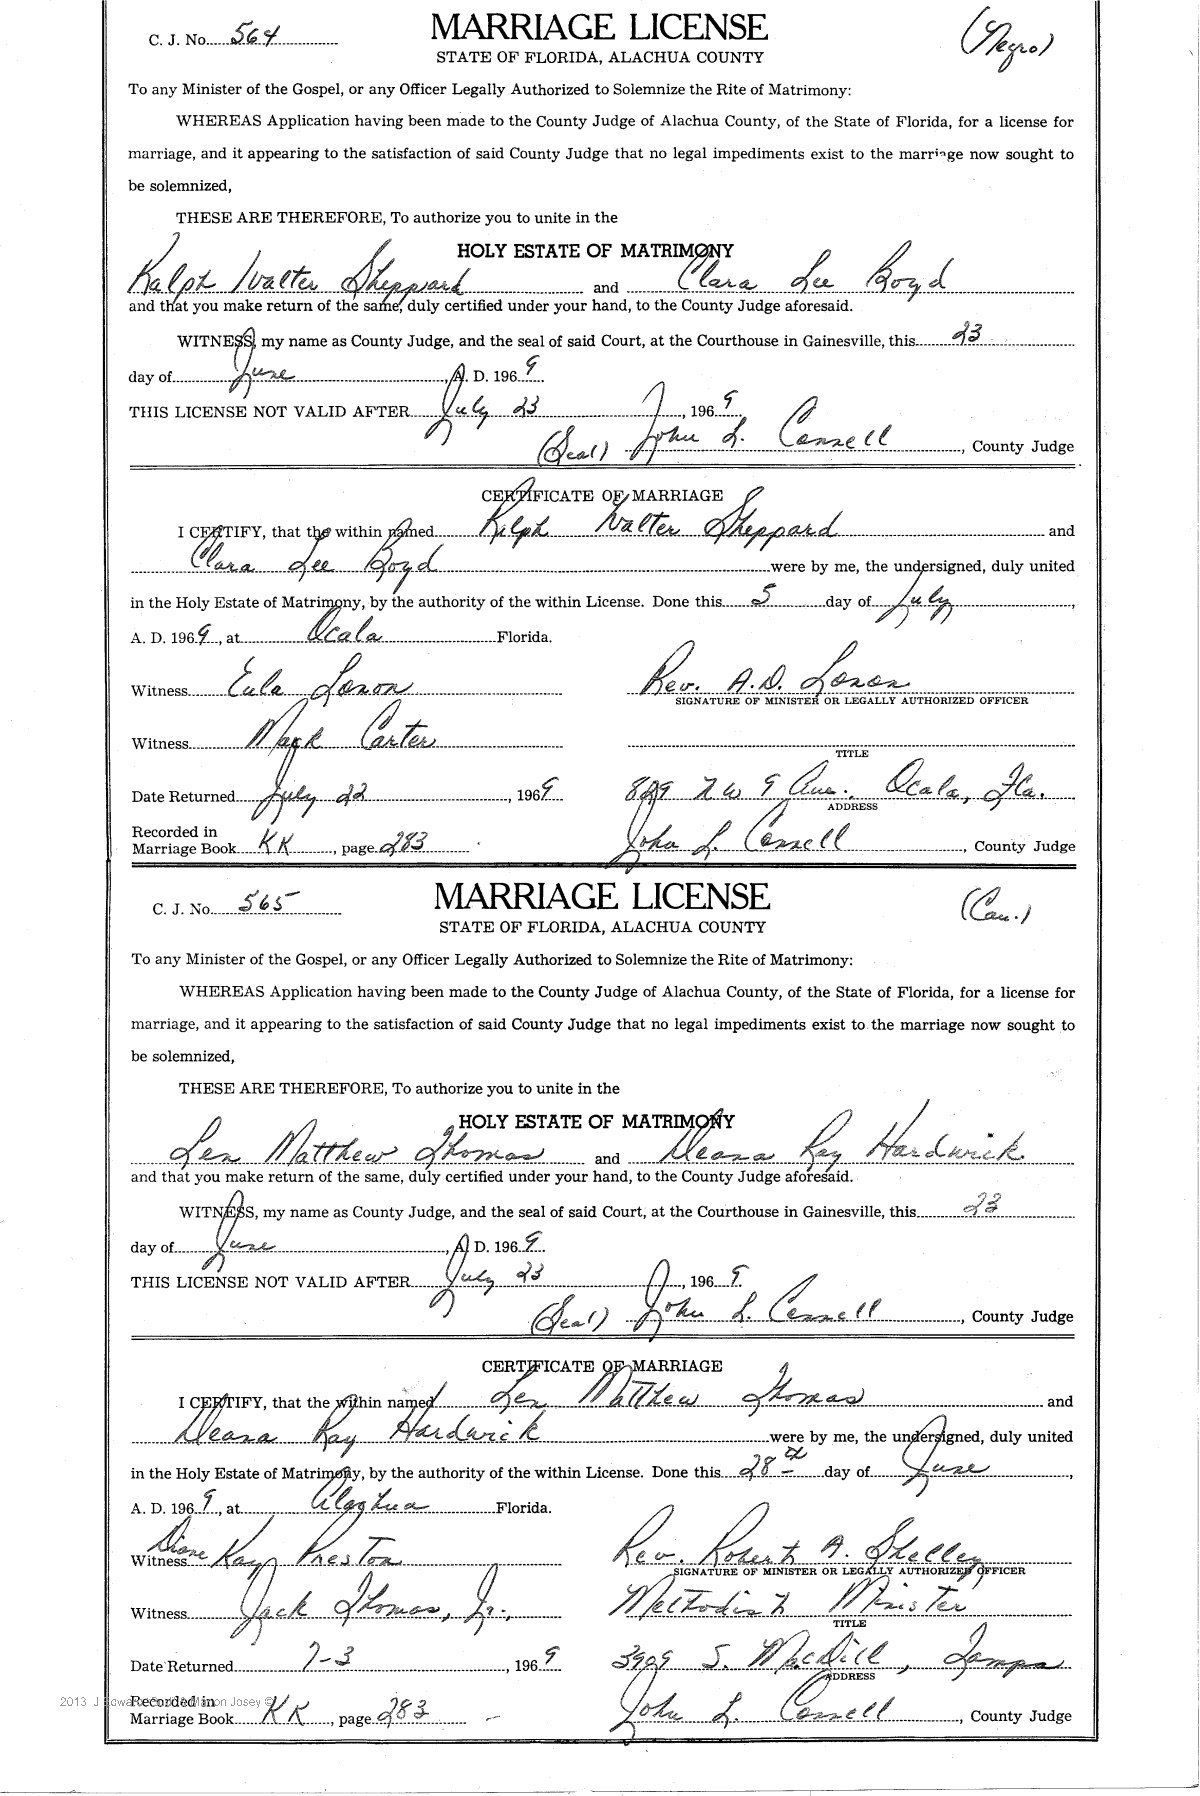 C. J. No. 564
MARRIAGE LICENSE
(Negro)
STATE OF FLORIDA, ALACHUA COUNTY
To any Minister of the Gospel, or any Officer Legally Authorized to Solemnize the Rite of Matrimony:
WHEREAS Application having been made to the County Judge of Alachua County, of the State of Florida, for a license for
marriage, and it appearing to the satisfaction of said County Judge that no legal impediments exist to the marriage now sought to
be solemnized,
THESE ARE THEREFORE, To authorize you to unite in the
HOLY ESTATE OF MATRIMONY
Ralph Walter Sheppard and Clara Lee Boyd
and that you make return of the same, duly certified under your hand, to the County Judge aforesaid.
WITNESS, my name as County Judge, and the seal of said Court, at the Courthouse in Gainesville, this 23
day of June, A. D. 1969
THIS LICENSE NOT VALID AFTER July 23, 1969
(Seal) John L. Connell, County Judge
CERTIFICATE OF MARRIAGE
I CERTIFY, that the within named Ralph Walter Sheppard and
Clara Lee Boyd were by me, the undersigned, duly united
in the Holy Estate of Matrimony, by the authority of the within License. Done this 5 day of July,
A. D. 1969, at Ocala Florida.
Witness Eula Lonon Rev. A.D. Lonon
SIGNATURE OF MINISTER OR LEGALLY AUTHORIZED OFFICER
Witness Mack Carter
TITLE
Date Returned July 22, 1969 829 N W 9 Ave. Ocala, Fla.
ADDRESS
Recorded in
Marriage Book KK, page 283 John L. Connell, County Judge
C. J. No. 565
MARRIAGE LICENSE
(Cau.)
STATE OF FLORIDA, ALACHUA COUNTY
To any Minister of the Gospel, or any Officer Legally Authorized to Solemnize the Rite of Matrimony:
WHEREAS Application having been made to the County Judge of Alachua County, of the State of Florida, for a license for
marriage, and it appearing to the satisfaction of said County Judge that no legal impediments exist to the marriage now sought to
be solemnized,
THESE ARE THEREFORE, To authorize you to unite in the
HOLY ESTATE OF MATRIMONY
Len Matthew Thomas and Deana Kay Hardwick
and that you make return of the same, duly certified under your hand, to the County Judge aforesaid.
WITNESS, my name as County Judge, and the seal of said Court, at the Courthouse in Gainesville, this 23
day of June, A. D. 1969
THIS LICENSE NOT VALID AFTER July 23, 1969
(Seal) John L. Connell, County Judge
CERTIFICATE OF MARRIAGE
I CERTIFY, that the within named Len Matthew Thomas and
Deana Kay Hardwick were by me, the undersigned, duly united
in the Holy Estate of Matrimony, by the authority of the within License. Done this 28th day of June,
A. D. 1969, at Alachua Florida.
Witness Diane Kay Preston Rev. Robert A. Shelley
SIGNATURE OF MINISTER OR LEGALLY AUTHORIZED OFFICER
Witness Jack Thomas, Jr., Methodist Minister
TITLE
Date Returned 7-3, 1969 3909 S. MacDill, Tampa
ADDRESS
Recorded in
Marriage Book KK, page 283 John L. Connell, County Judge
2013 J Josey ©